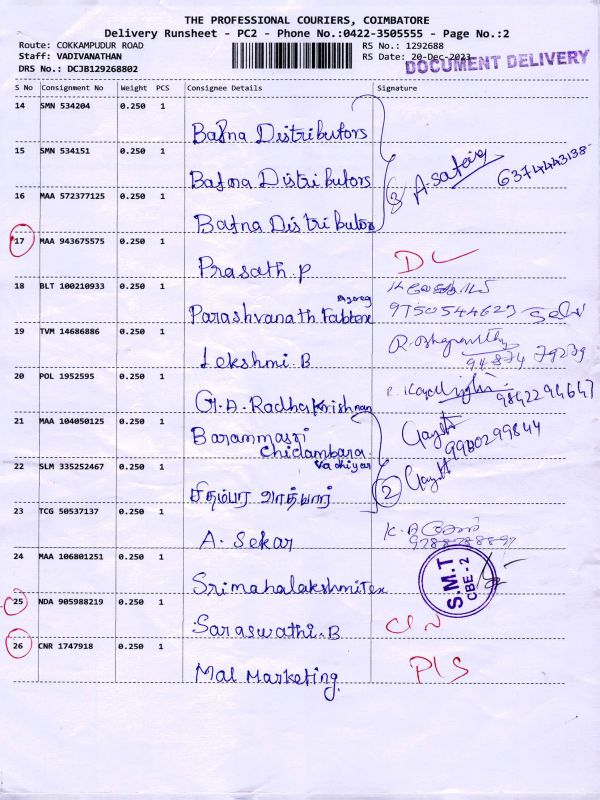 THE PROFESSIONAL COURIERS, COIMBATORE
Delivery Runsheet - PC2 - Phone No.:0422-3505555 - Page No.:2
Route: COKKAMPUDUR ROAD
RS No.: 1292688
Staff: VADIVANATHAN
RS Date: 20-Dec-2023
DRS No.: DCJB129268802
DOCUMENT DELIVERY
S No Consignment No Weight PCS Consignee Details Signature
14 SMN 534204 0.250 1
Bafna Distributors
15 SMN 534151 0.250 1
Bafna Distributors
3 A. 6374443138
16 MAA 572377125 0.250 1
Bafna Distributors
17 MAA 943675575 0.250 1
Prasath.P
DL
18 BLT 100210933 0.250 1
Parashvanath
9750544623
19 TVM 14686886 0.250 1
Lekshmi.B
R.
20 POL 1952595 0.250 1
G.A. Radhakrishnan
9842294647
21 MAA 104050125 0.250 1
Chidambara
Vadhiyar
9900299844
22 SLM 335252467 0.250 1
சிதம்பர வாத்யார்
2
23 TCG 50537137 0.250 1
A. Sekar
24 MAA 106801251 0.250 1
Srimahalakshmi Tex
S.M.T
CBE-2
25 NDA 905988219 0.250 1
Saraswathi.B
26 CNR 1747918 0.250 1
Mal Marketing.